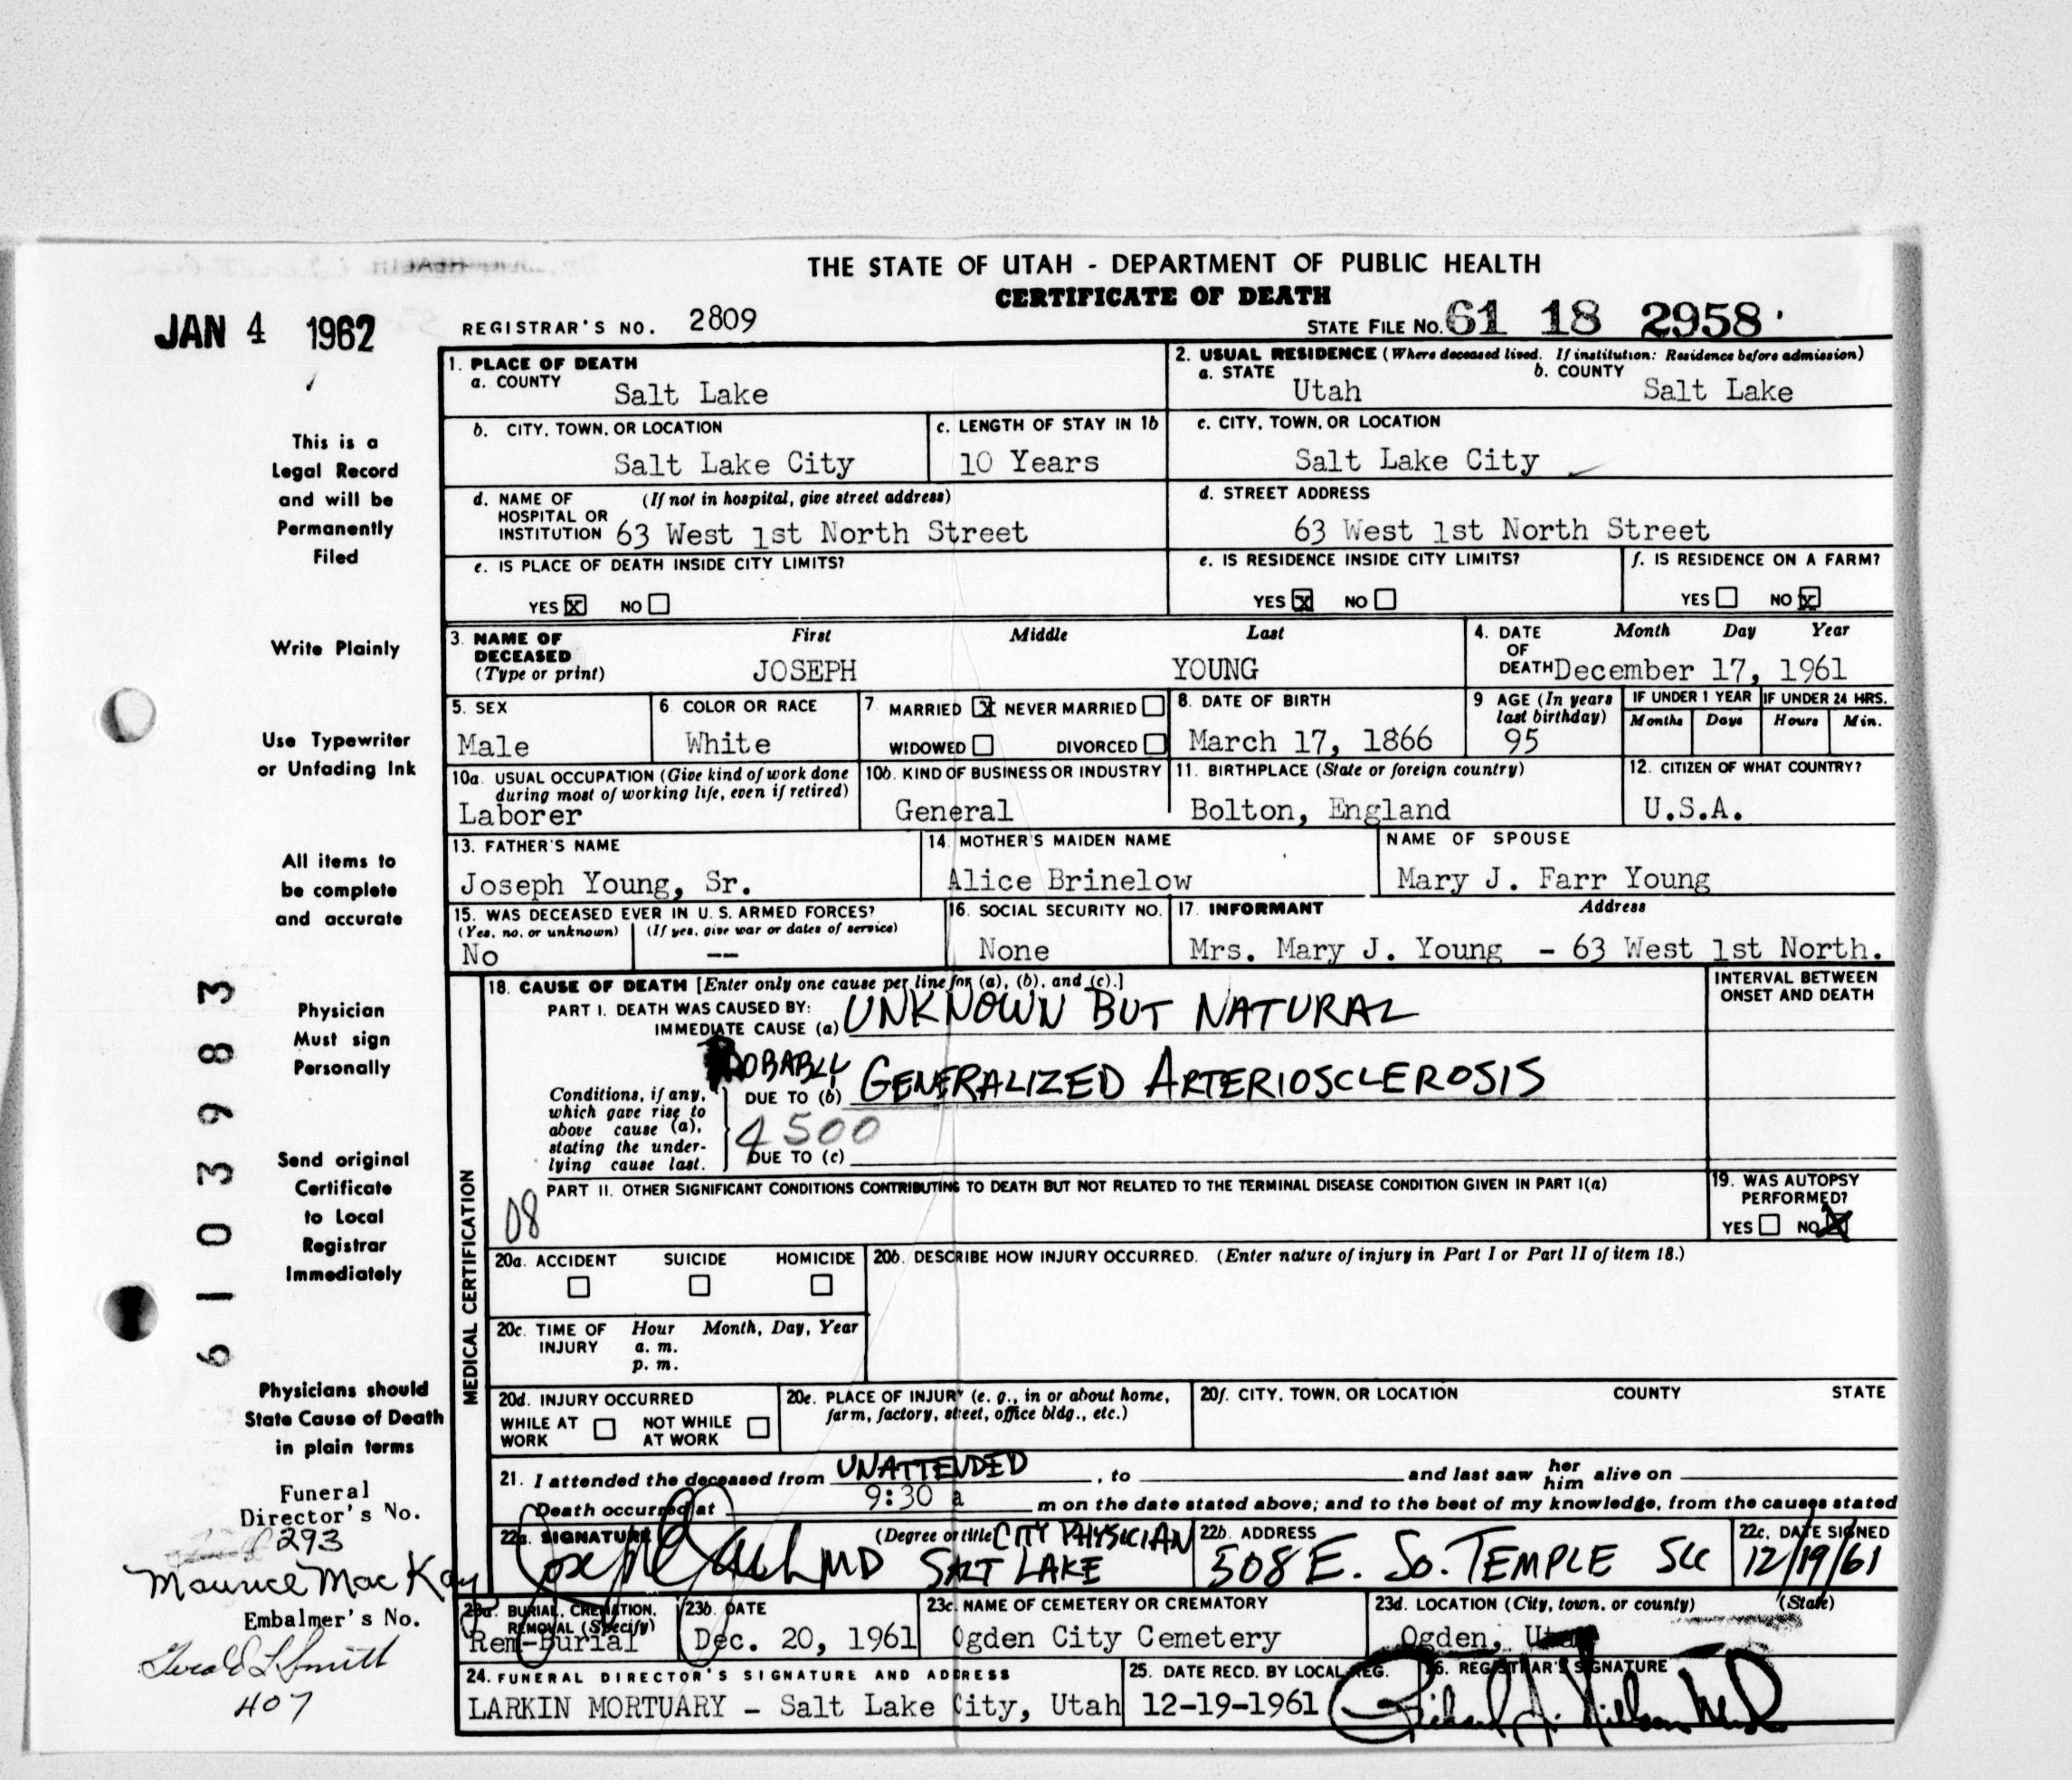 THE STATE OF UTAH - DEPARTMENT OF PUBLIC HEALTH
CERTIFICATE OF DEATH
JAN 4 1962
REGISTRAR'S NO. 2809
STATE FILE NO. 61 18 2958
This is a
Legal Record
and will be
Permanently
Filed
Write Plainly
Use Typewriter
or Unfading Ink
All items to
be complete
and accurate
Physician
Must sign
Personally
Send original
Certificate
to Local
Registrar
Immediately
Physicians should
State Cause of Death
in plain terms
Funeral
Director's No.
293
Maurice Mac Kay
Embalmer's No.
Smith
407
6103983
1. PLACE OF DEATH
a. COUNTY Salt Lake
2. USUAL RESIDENCE (Where deceased lived. If institution: Residence before admission)
a. STATE Utah b. COUNTY Salt Lake
b. CITY, TOWN, OR LOCATION Salt Lake City
c. LENGTH OF STAY IN 1b 10 Years
c. CITY, TOWN, OR LOCATION Salt Lake City
d. NAME OF HOSPITAL OR INSTITUTION (If not in hospital, give street address) 63 West 1st North Street
d. STREET ADDRESS 63 West 1st North Street
e. IS PLACE OF DEATH INSIDE CITY LIMITS?
YES X NO
e. IS RESIDENCE INSIDE CITY LIMITS?
YES X NO
f. IS RESIDENCE ON A FARM?
YES NO X
3. NAME OF DECEASED (Type or print) First Middle Last
JOSEPH YOUNG
4. DATE OF DEATH Month Day Year
December 17, 1961
5. SEX Male
6. COLOR OR RACE White
7. MARRIED X NEVER MARRIED
WIDOWED DIVORCED
8. DATE OF BIRTH March 17, 1866
9 AGE (In years last birthday) 95
IF UNDER 1 YEAR Months Days
IF UNDER 24 HRS. Hours Min.
10a. USUAL OCCUPATION (Give kind of work done during most of working life, even if retired)
Laborer
10b. KIND OF BUSINESS OR INDUSTRY
General
11. BIRTHPLACE (State or foreign country)
Bolton, England
12. CITIZEN OF WHAT COUNTRY?
U.S.A.
13. FATHER'S NAME
Joseph Young, Sr.
14. MOTHER'S MAIDEN NAME
Alice Brinelow
NAME OF SPOUSE
Mary J. Farr Young
15. WAS DECEASED EVER IN U. S. ARMED FORCES?
(Yes, no, or unknown) (If yes, give war or dates of service)
No --
16. SOCIAL SECURITY NO.
None
17. INFORMANT Address
Mrs. Mary J. Young - 63 West 1st North.
MEDICAL CERTIFICATION
18. CAUSE OF DEATH [Enter only one cause per line for (a), (b), and (c).]
INTERVAL BETWEEN
ONSET AND DEATH
PART I. DEATH WAS CAUSED BY:
IMMEDIATE CAUSE (a) UNKNOWN BUT NATURAL
PROBABLY
Conditions, if any, which gave rise to above cause (a), stating the underlying cause last.
DUE TO (b) GENERALIZED ARTERIOSCLEROSIS
4500
DUE TO (c)
PART II. OTHER SIGNIFICANT CONDITIONS CONTRIBUTING TO DEATH BUT NOT RELATED TO THE TERMINAL DISEASE CONDITION GIVEN IN PART I(a)
08
19. WAS AUTOPSY PERFORMED?
YES NO X
20a. ACCIDENT SUICIDE HOMICIDE
20b. DESCRIBE HOW INJURY OCCURRED. (Enter nature of injury in Part I or Part II of item 18.)
20c. TIME OF INJURY Hour Month, Day, Year
a. m.
p. m.
20d. INJURY OCCURRED
WHILE AT WORK NOT WHILE AT WORK
20e. PLACE OF INJURY (e. g., in or about home, farm, factory, street, office bldg., etc.)
20f. CITY, TOWN, OR LOCATION COUNTY STATE
21. I attended the deceased from UNATTENDED, to and last saw her him alive on
Death occurred at 9:30 a m on the date stated above; and to the best of my knowledge, from the causes stated
22a. SIGNATURE (Degree or title) CITY PHYSICIAN
Joseph MD SALT LAKE
22b. ADDRESS
508 E. So. TEMPLE SLC
22c. DATE SIGNED
12/19/61
23a. BURIAL, CREMATION, REMOVAL (Specify)
Rem-Burial
23b. DATE
Dec. 20, 1961
23c. NAME OF CEMETERY OR CREMATORY
Ogden City Cemetery
23d. LOCATION (City, town, or county) (State)
Ogden, Utah
24. FUNERAL DIRECTOR'S SIGNATURE AND ADDRESS
LARKIN MORTUARY - Salt Lake City, Utah
25. DATE RECD. BY LOCAL REG.
12-19-1961
26. REGISTRAR'S SIGNATURE
Richard